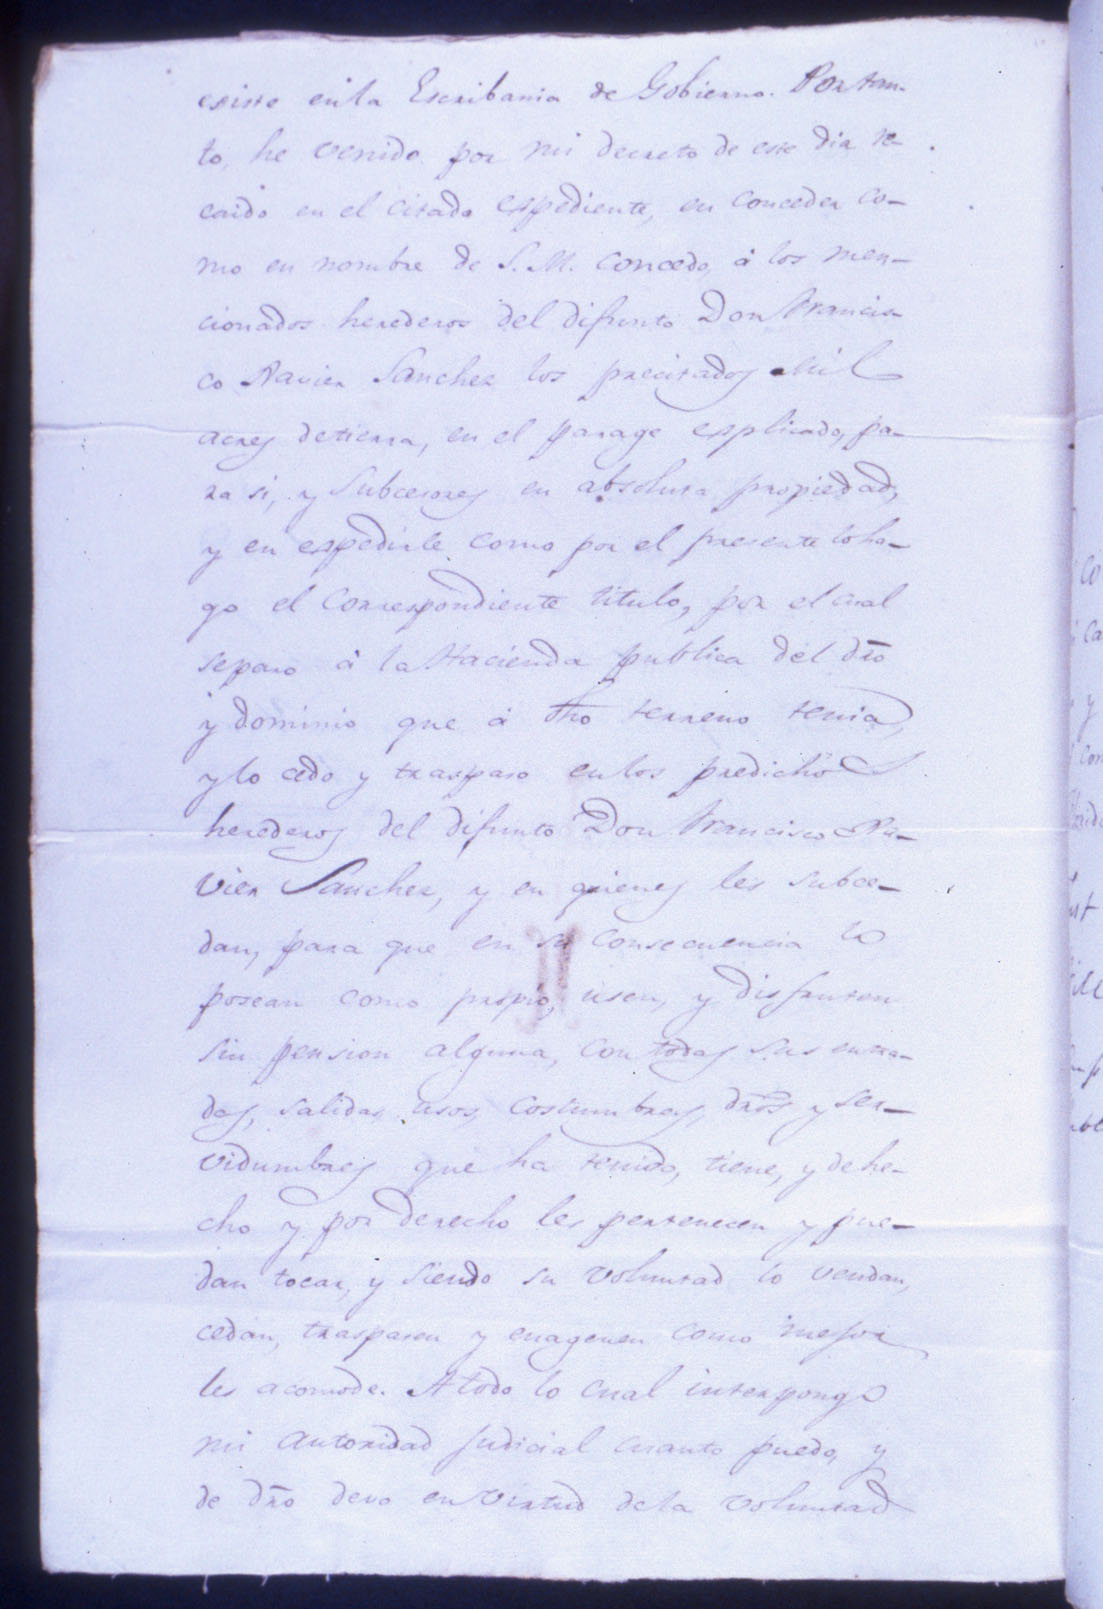 existe en la Escribania de Gobierno. Portan-
to, he venido por mi decreto de este dia re-
caido en el citado espediente, en conceder co-
mo en nombre de S. M. concedo, á los men-
cionados herederos del difunto Don Francis-
co Xavier Sanchez los precitados mil
acres de tierra, en el parage esplicado, pa-
ra si, y Subcesores en absoluta propiedad,
y en espedirle como por el presente lo ha-
go el Correspondiente titulo, por el cual
separo á la Hacienda publica del dro
y dominio que á dho terreno tenia,
y lo cedo y traspaso en los predichos
herederos del difunto Don Francisco Xa-
vier Sanchez, y en quienes les subce-
dan, para que en su consecuencia lo
posean como propio, usen, y disfruten
sin pension alguna, con todas sus entra-
das, salidas, usos, costumbres, dros y ser-
vidumbres que ha tenido, tiene, y de he-
cho y por derecho les pertenecen y pue-
dan tocar, y siendo su voluntad lo vendan,
cedan, traspasen y enagenen como mejor
les acomode. A todo lo cual interpongo
mi autoridad judicial cuanto puedo, y
de dro devo en virtud de la voluntad